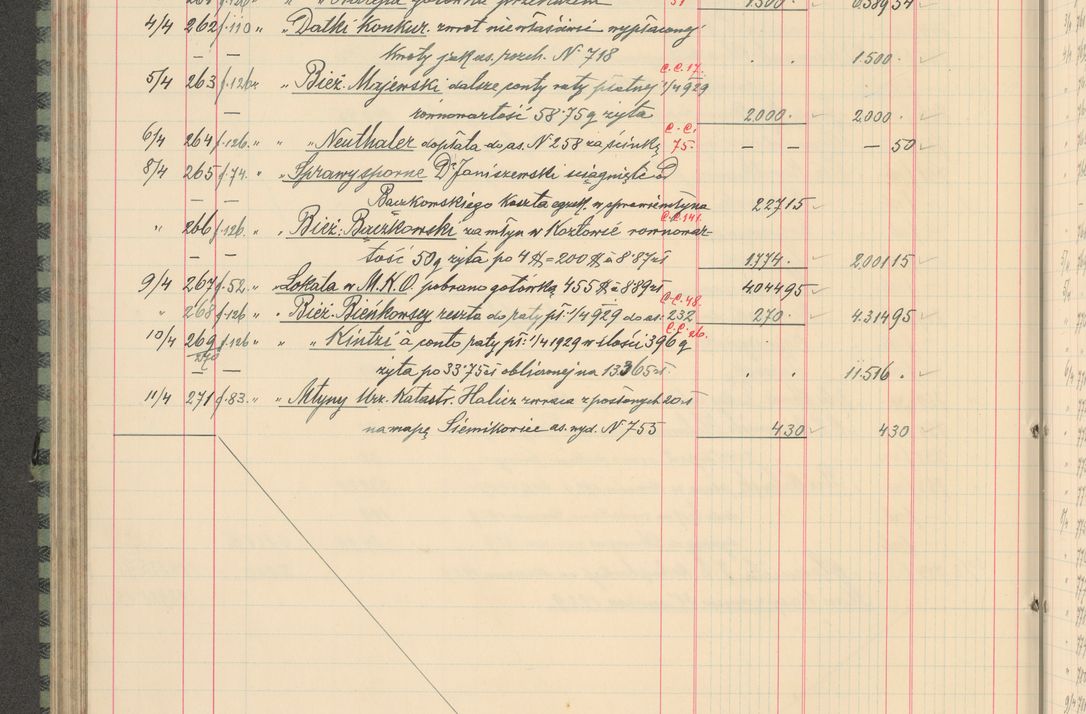 4/4 262 f. 110 " " Datki Konkur. zwrot niewłaściwie wypłaconej
— — Kwoty jak as. rozch. N 718 . . 1.500 .
C.C. 17.
5/4 263 f. 126. " Bież. Majewski dalsze conto raty płatnej 1/4 929
— równowartość 58·75 q żyta 2.000 . 2.000 .
C.C.
6/4 264 f. 126. " " Neuthaler dopłata do as. N 258 za ścinkę 75. — — — 50
8/4 265 f. 74. " " Sprawy sporne Dr Janiszewski ściągnięte
— — Baczkowskiego Koszta egzek. w sprawie młyna 227 15
C.C. 141.
" 266 f. 126. " " Bież: Baczkowski za młyn w Kozłowie równowar-
— — tość 50 q żyta po 4 $ = 200 $ à 8·87 zł 1.774 . 2.001 15
9/4 267 f. 52. " " Lokata w M.K.O. pobrano gotówkę 455 $ à 8·89 zł 4.044 95
C.C. 48.
" 268 f. 126 " " Bież. Bieńkowscy reszta do raty pł: 1/4 929 do as: 232 270 . 4.314 95
C.C. 26.
10/4 269 f. 126 " " " Kintzi à conto raty pł: 1/4 1929 w ilości 396 q
270
— — żyta po 33·75 zł obliczonej na 13365 zł . . 11.516 .
11/4 271 f. 83. " " Młyny Urz. Katastr. Halicz zwraca z posłanych 20 zł
na mapę Siemikowiec as. wyd. N 755 4 30 4 30